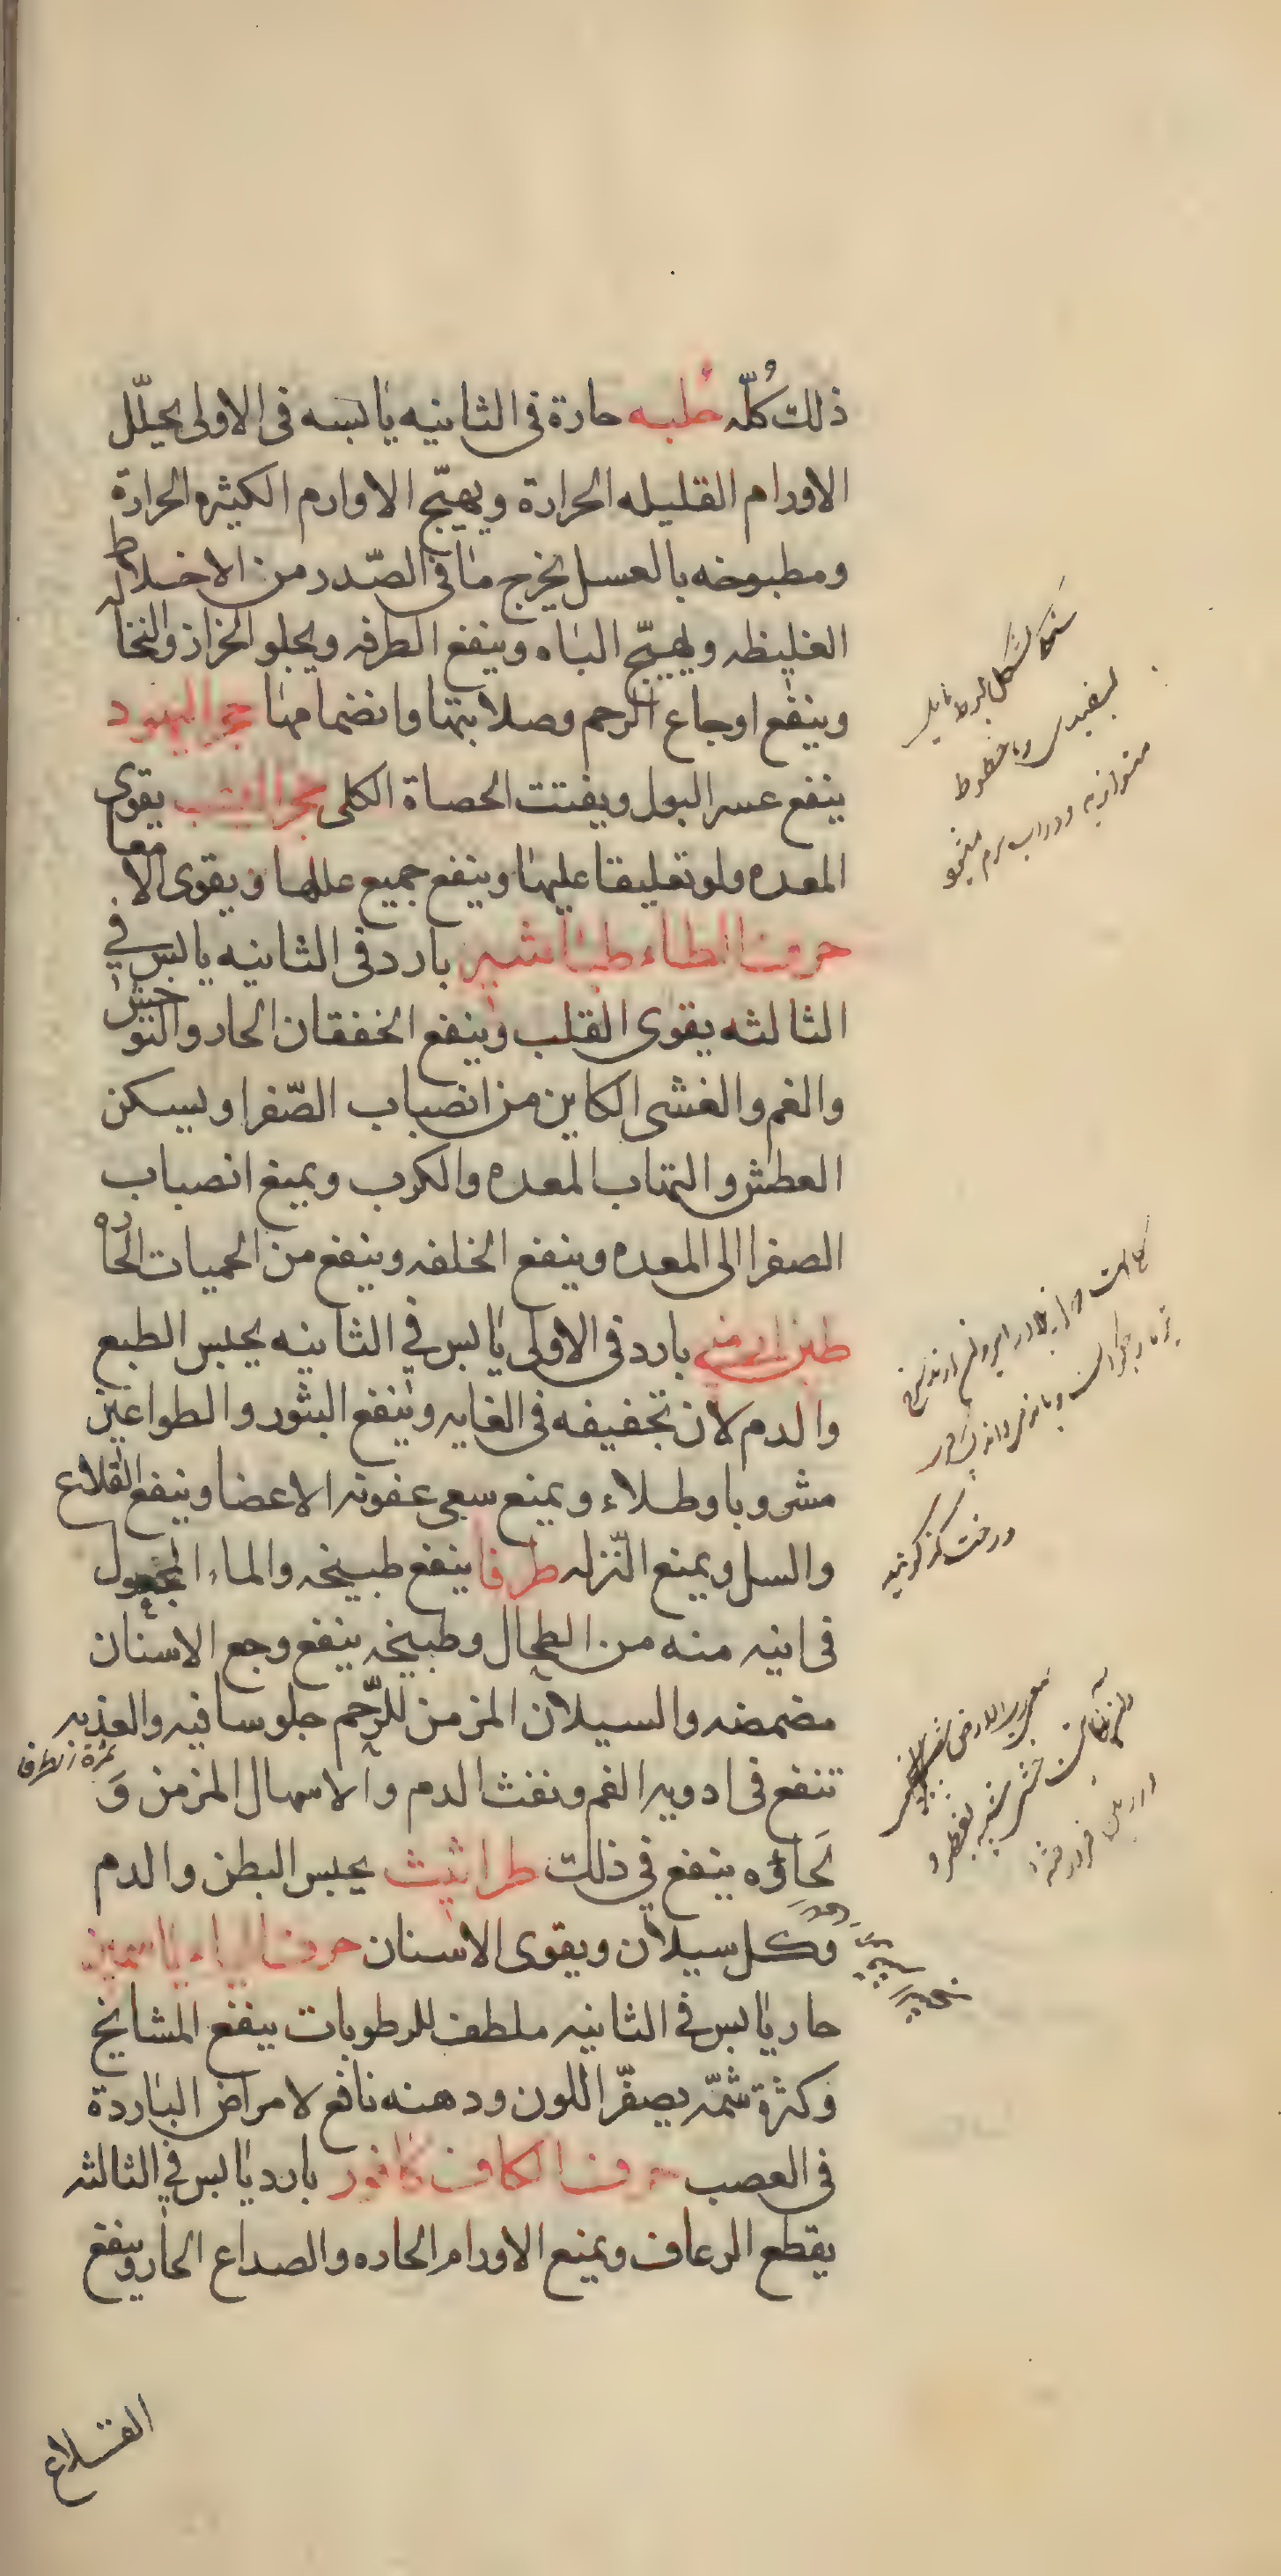 ذلك كُلّه حُلبه حارة فى الثانيه يابسه فى الاولى يحلّل
الاورام القليله الحرارة ويهيّج الاوارم الكثيره الحرارة
ومطبوخه بالعسل يخرج ما فى الصّدر من الاخلاط
الغليظه ويهيّج الباه وينفع الطرفه ويجلو الحزاز والنخاله
وينفع اوجاع الرحم وصلابتها وانضمامها حجر اليهود
ينفع عسر البول ويفتت الحصاة الكلى حجر اليشب يقوى
المعده ولو تعليقا عليها وينفع جميع عللها ويقوى الامعا
حرف الطاء طباشير بارد فى الثانيه يابس في
الثالثه يقوى القلب وينفع الخفقان الحار والتوحش
والغم والغشى الكاين من انصباب الصّفرا ويسكن
العطش والتهاب المعده والكرب ويمنع انصباب
الصفرا الى المعده وينفع الخلفه وينفع من الحميات الحاده
طين ارمنى بارد فى الاولى يابس في الثانيه يحبس الطبع
والدم لان تجفيفه فى الغايه وينفع البثور والطواعين
مشروبا وطلاء ويمنع سعى عفونه الاعضا وينفع القلاع
والسل ويمنع النّزله طرفا ينفع طبيخه والماء المجعول
فى انيه منه من الطحال وطبيخه ينفع وجع الاسنان
مضمضه والسيلان المزمن للرّحم جلوسا فيه والعذبه
ثمرة الطرفا
تنفع فى ادويه الفم ونفث الدم والاسهال المزمن وَ
لحاؤه ينفع في ذلك طراثيث يحبس البطن والدم
وكل سيلان ويقوى الاسنان حرف الياء ياسمين
حار يابس في الثانيه ملطف للرطوبات ينفع المشايخ
وكثرة شمّه يصفّر اللون ودهنه نافع لامراض الباردة
فى العصب حرف الكاف كافور بارد يابس في الثالثه
يقطع الرعاف ويمنع الاورام الحاره والصداع الحار وينفع
القلاع
بشكل
بسفيدى خطوط
متوازيه ودر اب
درخت كز كويند